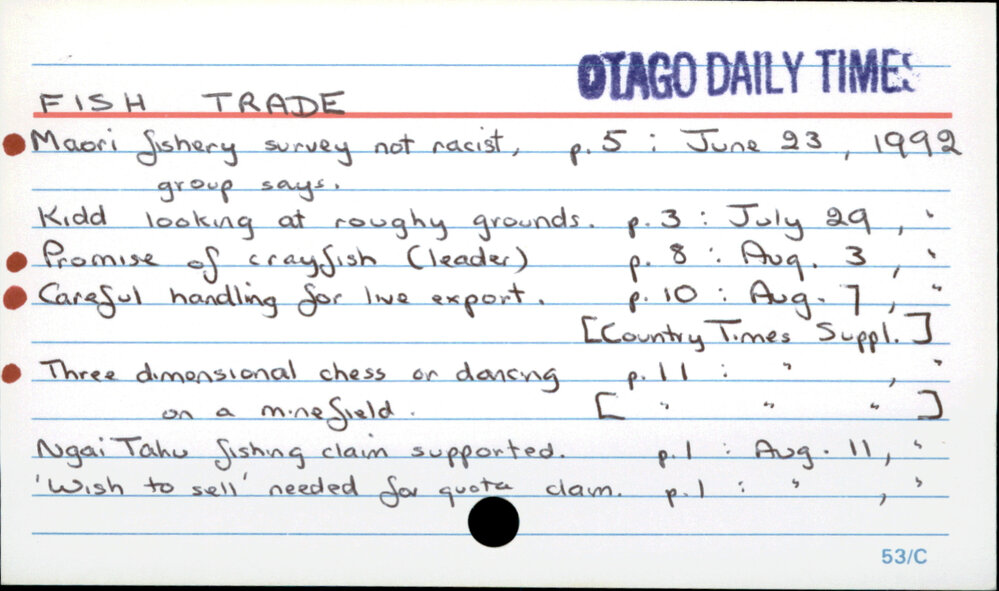 OTAGO DAILY TIMES
FISH TRADE
Maori fishery survey not racist, p. 5 : June 23, 1992
group says.
Kidd looking at roughy grounds. p. 3 : July 29, "
Promise of crayfish (leader) p. 8 : Aug. 3, "
Careful handling for live export. p. 10 : Aug. 7, "
[Country Times Suppl.]
Three dimensional chess or dancing p. 11 : " , "
on a minefield. [ " " " ]
Ngai Tahu fishing claim supported. p. 1 : Aug. 11, "
'Wish to sell' needed for quota claim. p. 1 : " , "
53/C